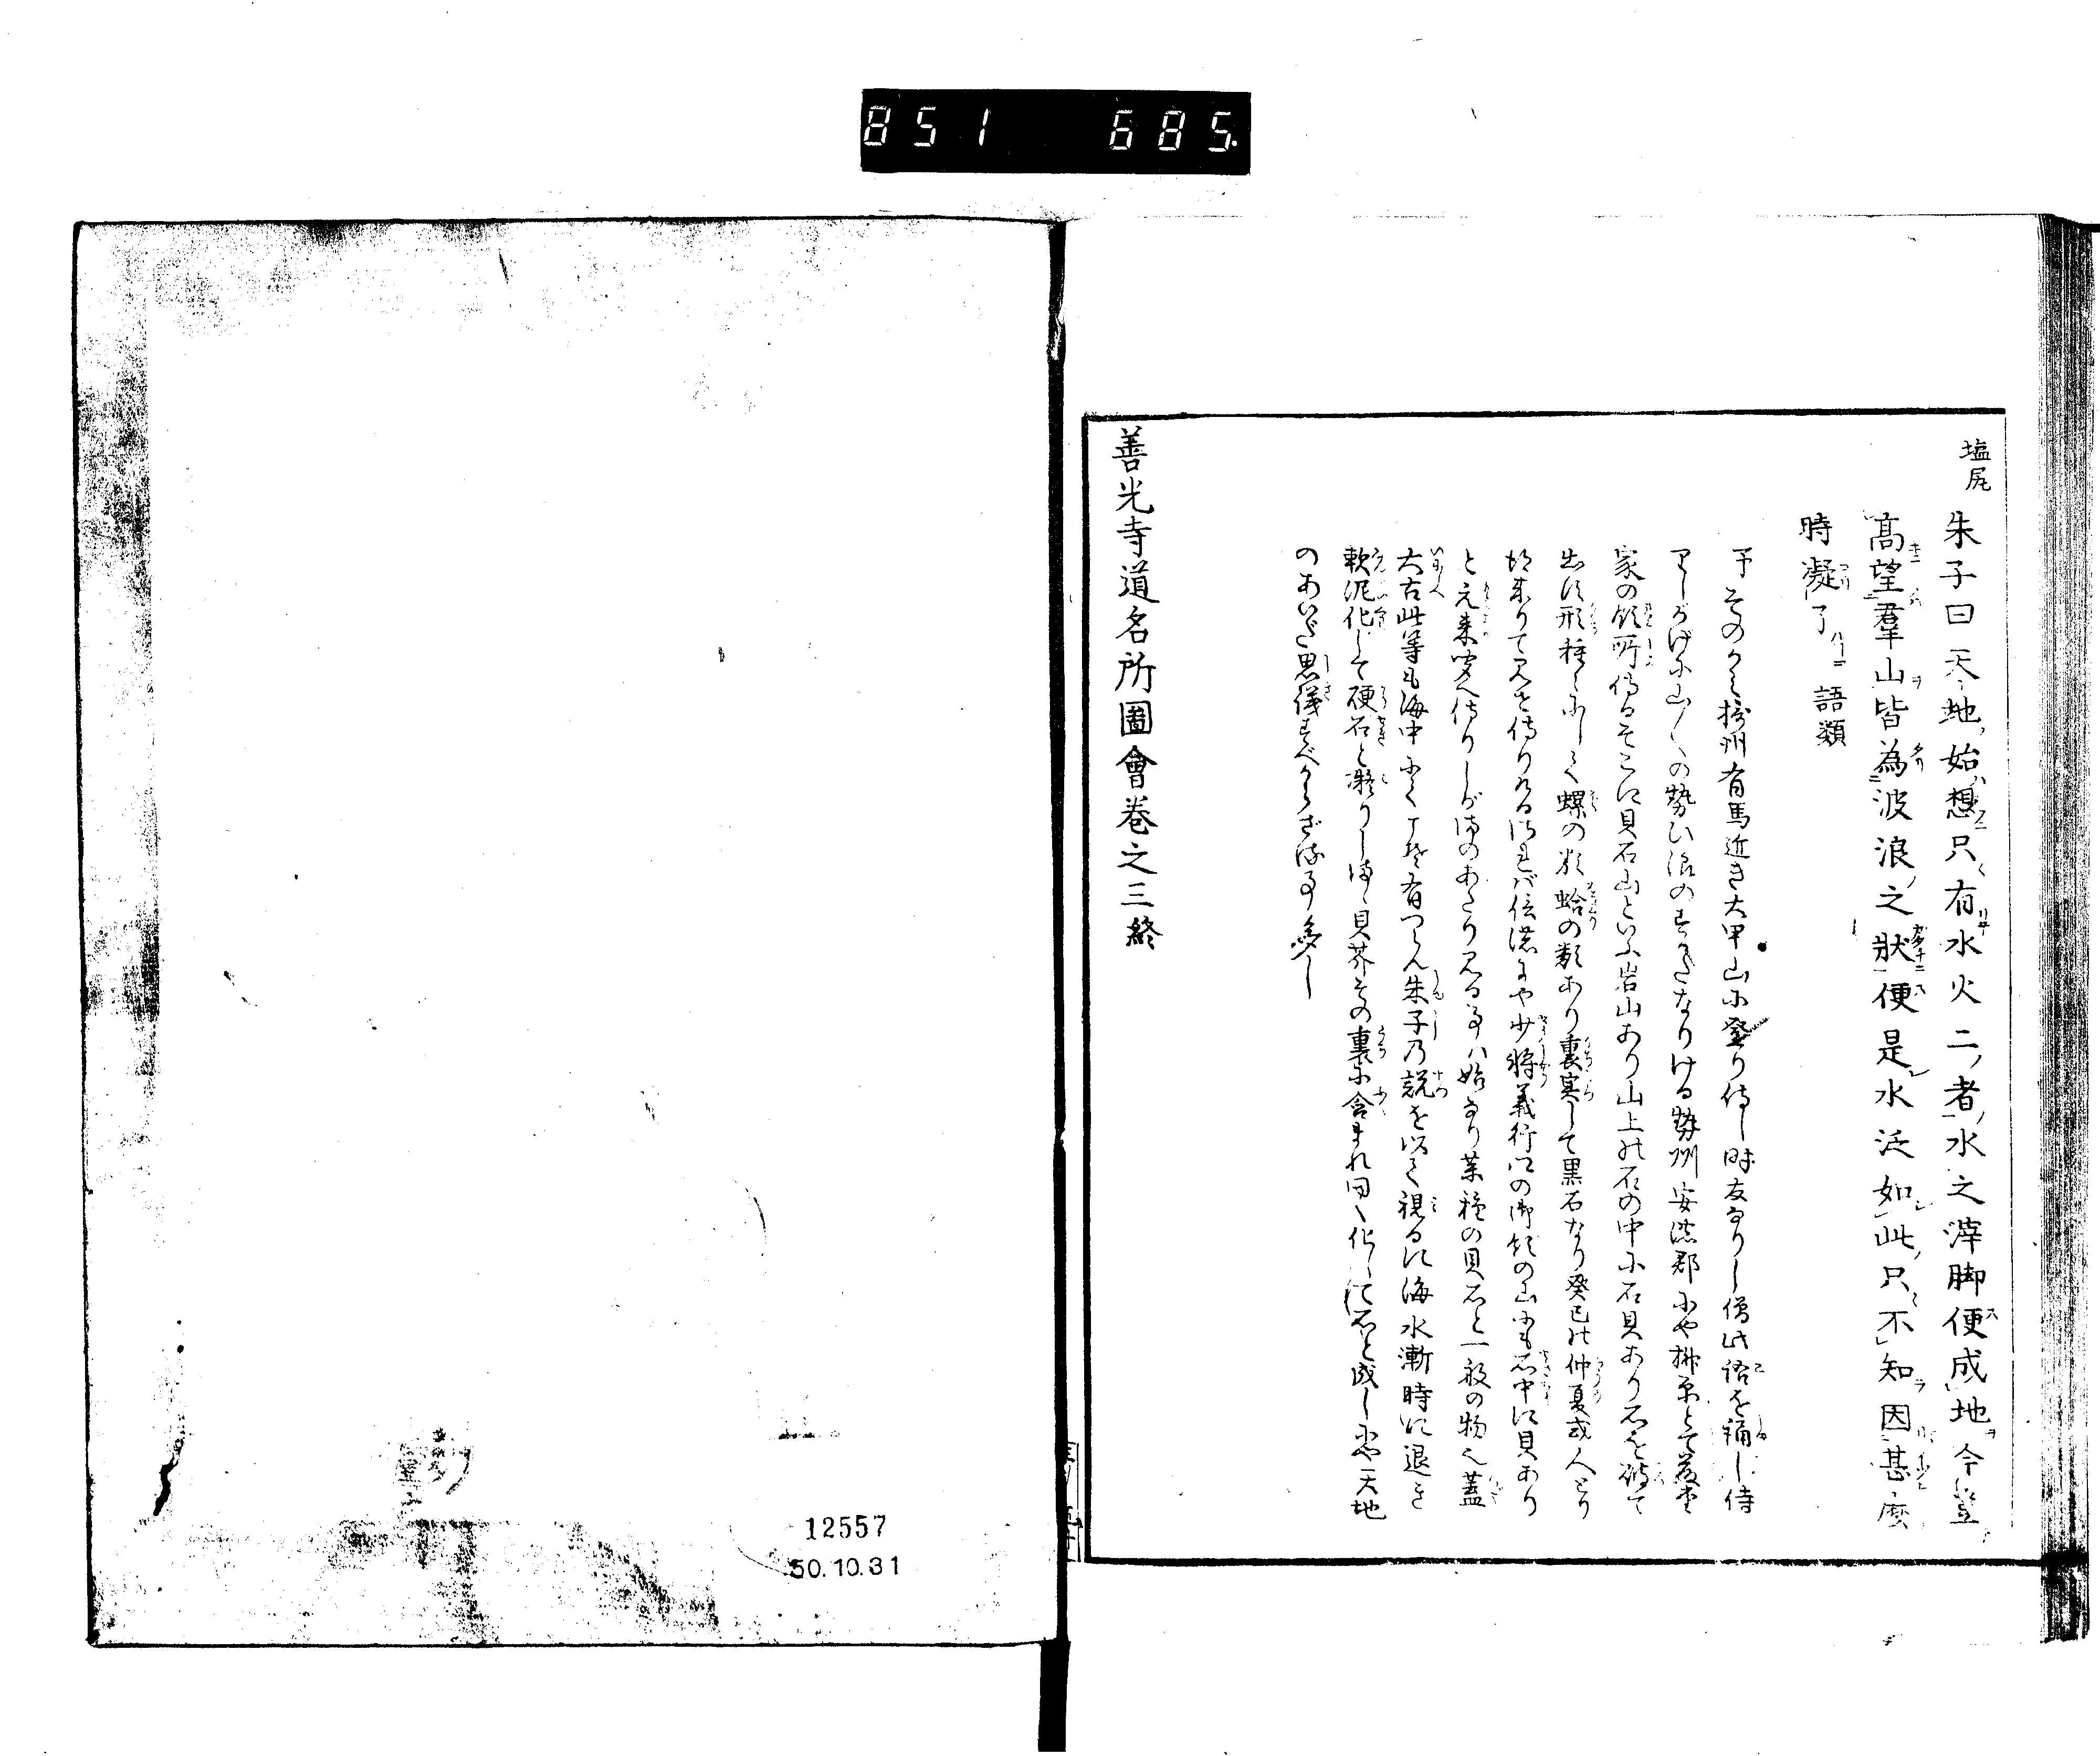 851 685.
塩尻
朱子曰天地始想只有水火二者水之滓脚便成地今登
高望羣山皆為波浪之狀便是水泛如此只不知因甚麼
時凝了 語類
予そのかみ摂州有馬近き大甲山に登り侍し時友なりし僧此語を誦し侍
りしがげに山〱の勢ひ浪のすがたなりける勢州安濃郡にや榊原とて
家の領所侍るそこに貝石山といふ岩山あり山上の石の中に石貝あり石を破て
出す形種〻にして螺の類蛤の類あり裏実して黒石なり癸巳の仲夏或人とり
来りて見せ侍りける 少将義行 の御領の山にも石中に貝あり
と元来聞侍りしがまのあたり見る事ハ始なり 種の貝石と一般の物也蓋
大古此等も海中にて 有つらん朱子の説を以て視るに海水漸時に退き
軟泥化して硬石と凝りしまゝ貝芥その裏に含まれ同く化して石と成しにや天地
のあいだ思儀すべからざる事多し
善光寺道名所圖會巻之三終
12557
50.10.31